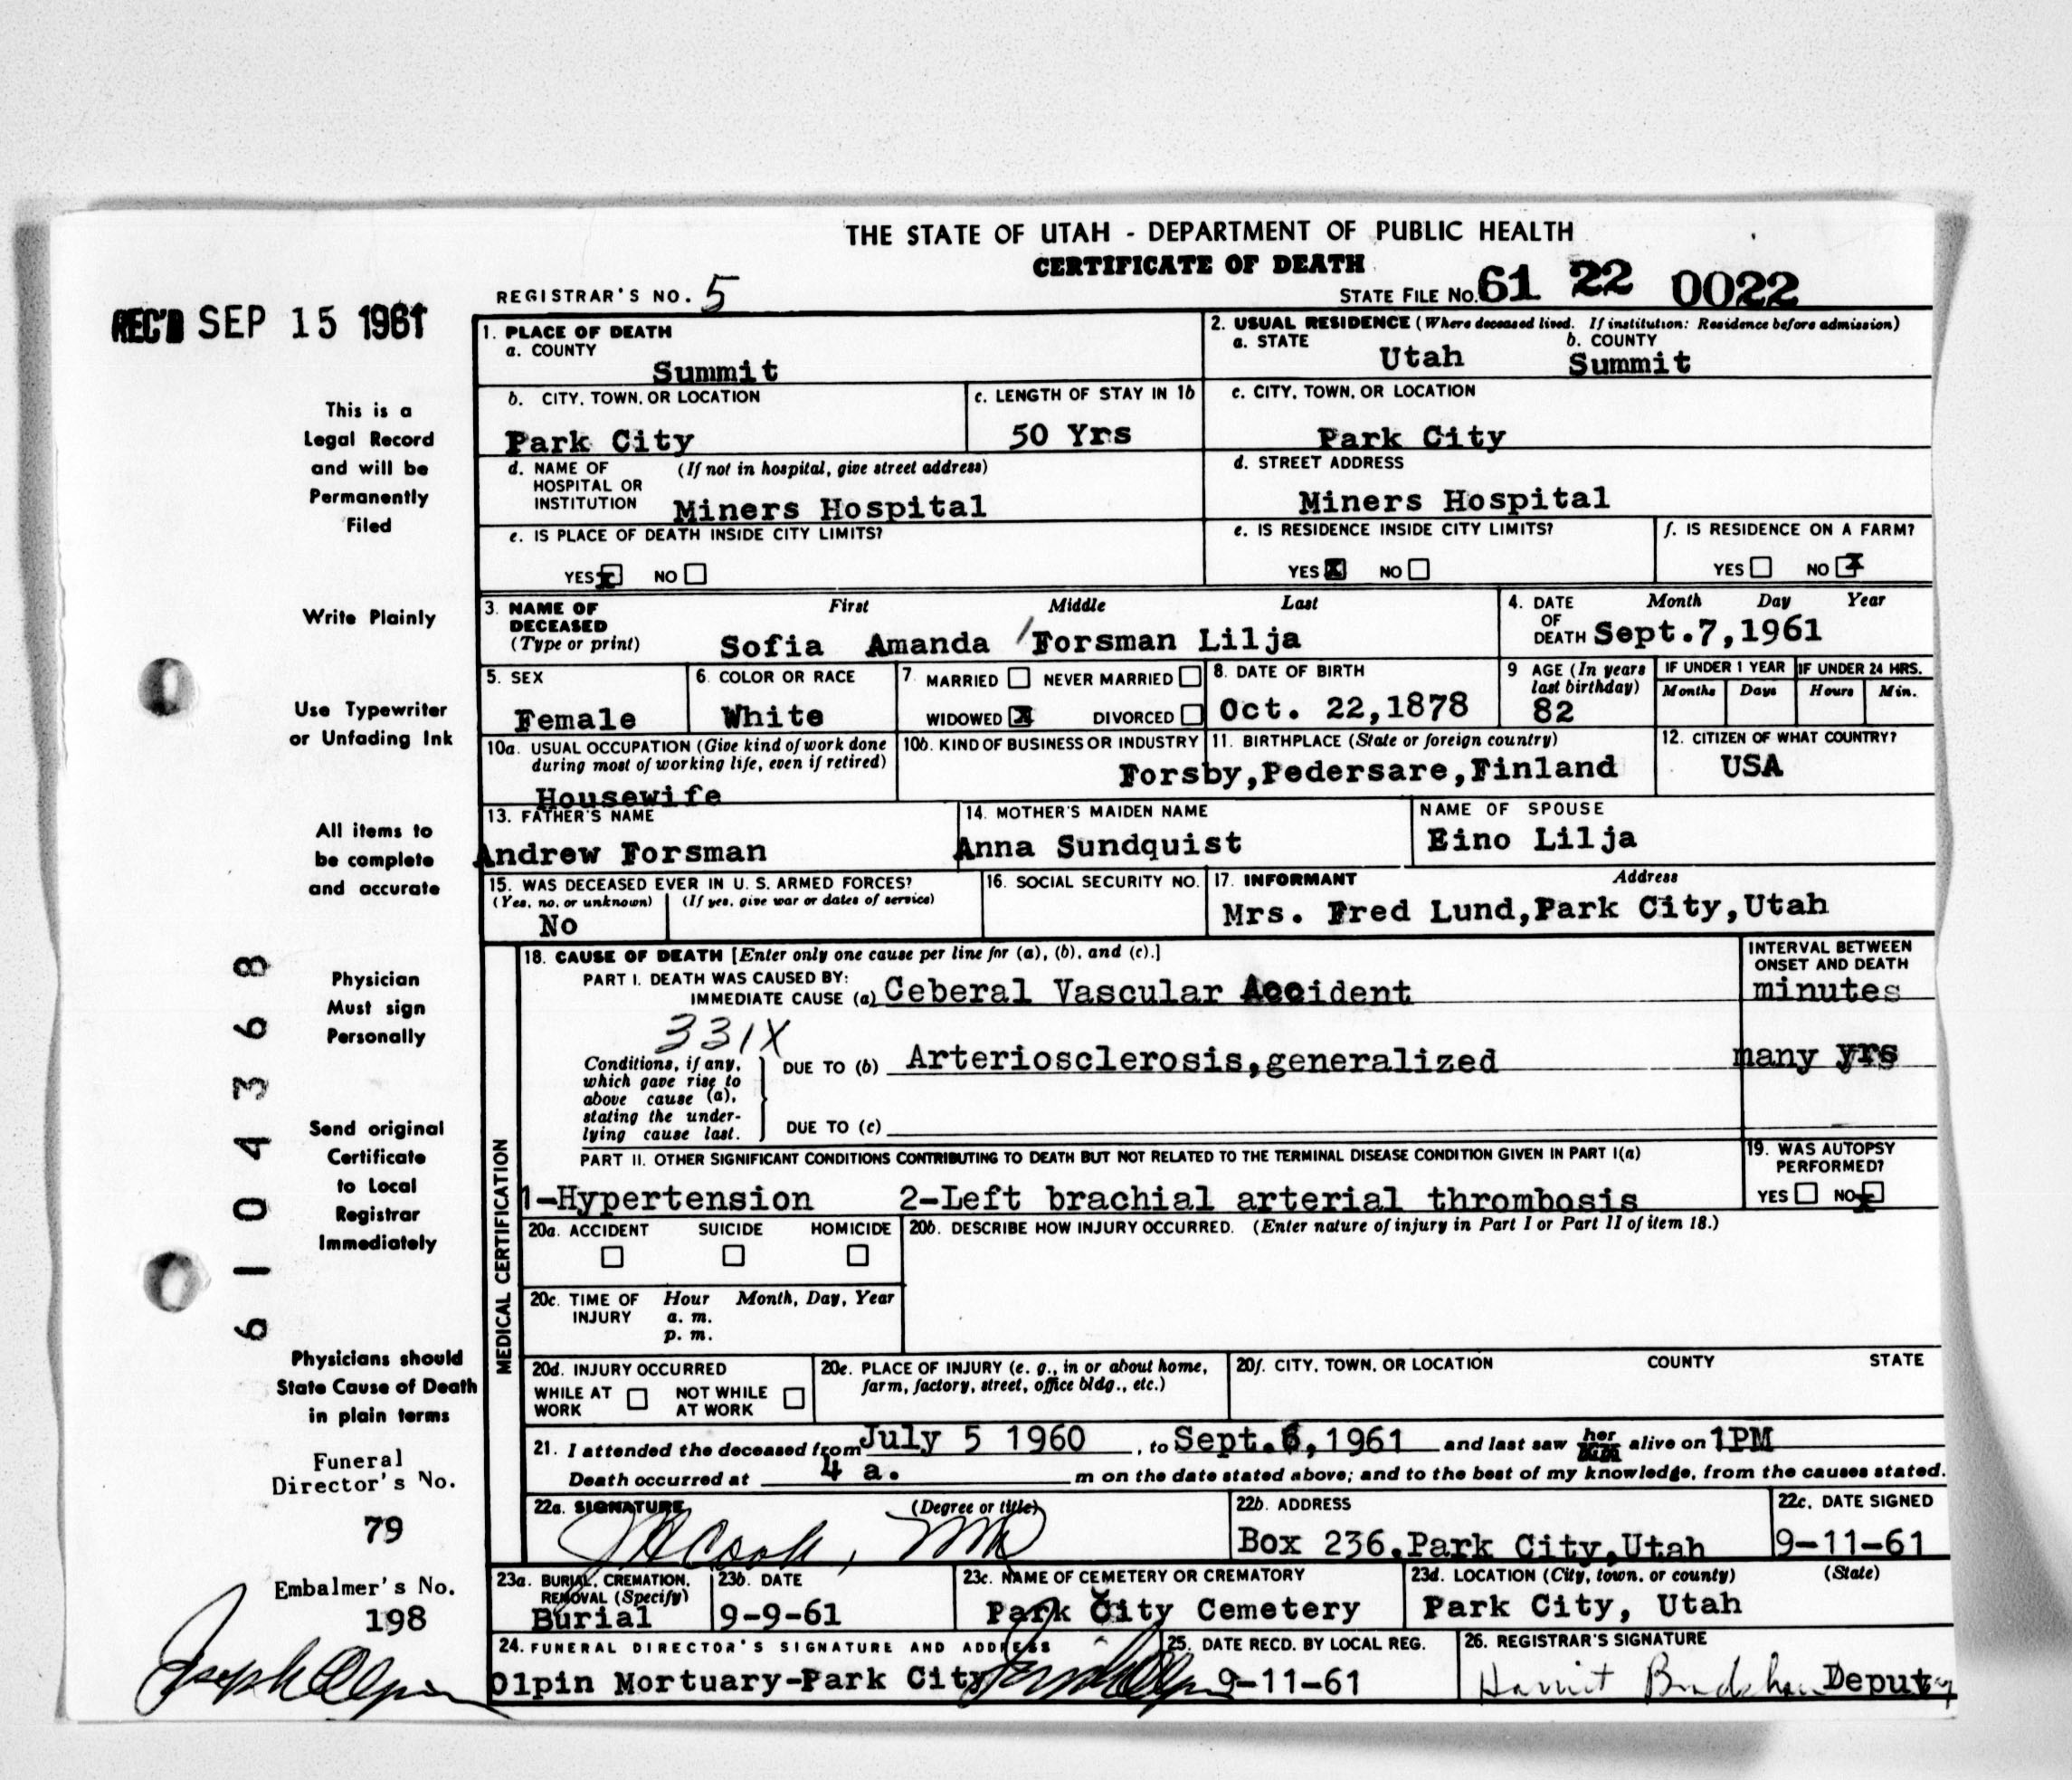 THE STATE OF UTAH - DEPARTMENT OF PUBLIC HEALTH
CERTIFICATE OF DEATH
REGISTRAR'S NO. 5
STATE FILE No. 61 22 0022
REC'D SEP 15 1961
This is a
Legal Record
and will be
Permanently
Filed
Write Plainly
Use Typewriter
or Unfading Ink
All items to
be complete
and accurate
Physician
Must sign
Personally
Send original
Certificate
to Local
Registrar
Immediately
Physicians should
State Cause of Death
in plain terms
Funeral
Director's No.
79
Embalmer's No.
198
Joseph Olpin
6104368
1. PLACE OF DEATH
a. COUNTY
Summit
2. USUAL RESIDENCE (Where deceased lived. If institution: Residence before admission)
a. STATE b. COUNTY
Utah Summit
b. CITY, TOWN, OR LOCATION
Park City
c. LENGTH OF STAY IN 1b
50 Yrs
c. CITY, TOWN, OR LOCATION
Park City
d. NAME OF (If not in hospital, give street address)
HOSPITAL OR
INSTITUTION Miners Hospital
d. STREET ADDRESS
Miners Hospital
e. IS PLACE OF DEATH INSIDE CITY LIMITS?
YES x NO
e. IS RESIDENCE INSIDE CITY LIMITS?
YES x NO
f. IS RESIDENCE ON A FARM?
YES NO x
3. NAME OF First Middle Last
DECEASED
(Type or print) Sofia Amanda / Forsman Lilja
4. DATE Month Day Year
OF
DEATH Sept.7,1961
5. SEX
Female
6. COLOR OR RACE
White
7. MARRIED NEVER MARRIED
WIDOWED x DIVORCED
8. DATE OF BIRTH
Oct. 22,1878
9 AGE (In years
last birthday)
82
IF UNDER 1 YEAR IF UNDER 24 HRS.
Months Days Hours Min.
10a. USUAL OCCUPATION (Give kind of work done
during most of working life, even if retired)
Housewife
10b. KIND OF BUSINESS OR INDUSTRY
11. BIRTHPLACE (State or foreign country)
Forsby,Pedersare,Finland
12. CITIZEN OF WHAT COUNTRY?
USA
13. FATHER'S NAME
Andrew Forsman
14. MOTHER'S MAIDEN NAME
Anna Sundquist
NAME OF SPOUSE
Eino Lilja
15. WAS DECEASED EVER IN U. S. ARMED FORCES?
(Yes, no, or unknown) (If yes, give war or dates of service)
No
16. SOCIAL SECURITY NO.
17. INFORMANT Address
Mrs. Fred Lund,Park City,Utah
MEDICAL CERTIFICATION
18. CAUSE OF DEATH [Enter only one cause per line for (a), (b), and (c).]
PART I. DEATH WAS CAUSED BY:
IMMEDIATE CAUSE (a) Ceberal Vascular Accident
INTERVAL BETWEEN
ONSET AND DEATH
minutes
331X
Conditions, if any,
which gave rise to
above cause (a),
stating the under-
lying cause last.
DUE TO (b) Arteriosclerosis,generalized
many yrs
DUE TO (c)
PART II. OTHER SIGNIFICANT CONDITIONS CONTRIBUTING TO DEATH BUT NOT RELATED TO THE TERMINAL DISEASE CONDITION GIVEN IN PART I(a)
1-Hypertension 2-Left brachial arterial thrombosis
19. WAS AUTOPSY
PERFORMED?
YES NO x
20a. ACCIDENT SUICIDE HOMICIDE
20b. DESCRIBE HOW INJURY OCCURRED. (Enter nature of injury in Part I or Part II of item 18.)
20c. TIME OF Hour Month, Day, Year
INJURY a. m.
p. m.
20d. INJURY OCCURRED
WHILE AT NOT WHILE
WORK AT WORK
20e. PLACE OF INJURY (e. g., in or about home,
farm, factory, street, office bldg., etc.)
20f. CITY, TOWN, OR LOCATION COUNTY STATE
21. I attended the deceased from July 5 1960, to Sept.6,1961 and last saw her alive on 1PM
Death occurred at 4 a. m on the date stated above; and to the best of my knowledge, from the causes stated.
22a. SIGNATURE (Degree or title)
Cook, MD
22b. ADDRESS
Box 236,Park City,Utah
22c. DATE SIGNED
9-11-61
23a. BURIAL, CREMATION,
REMOVAL (Specify)
Burial
23b. DATE
9-9-61
23c. NAME OF CEMETERY OR CREMATORY
Park City Cemetery
23d. LOCATION (City, town, or county) (State)
Park City, Utah
24. FUNERAL DIRECTOR'S SIGNATURE AND ADDRESS
Olpin Mortuary-Park City
25. DATE RECD. BY LOCAL REG.
9-11-61
26. REGISTRAR'S SIGNATURE
Harriet Bradshaw Deputy